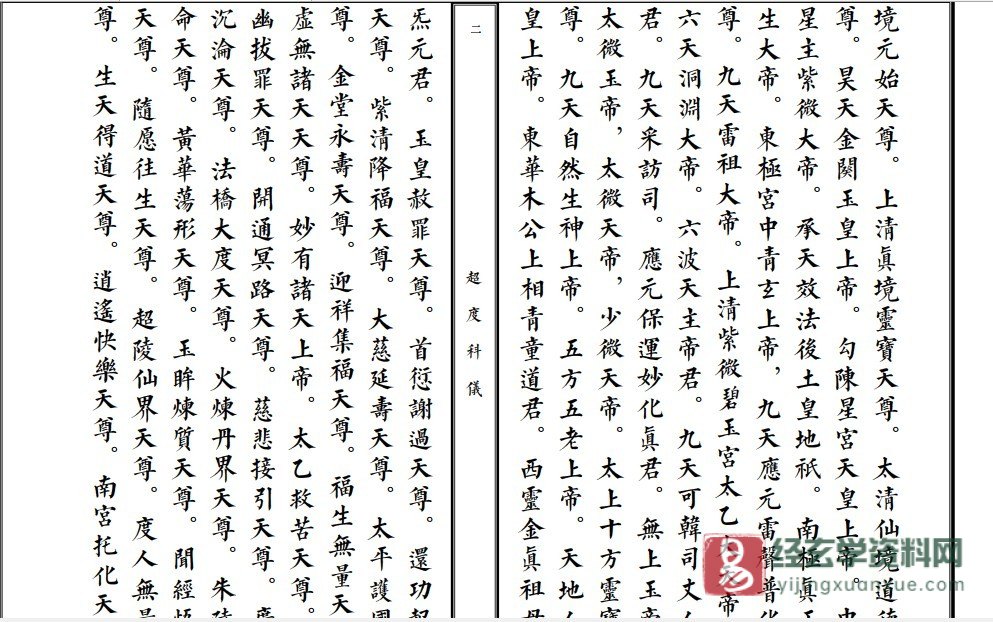 境元始天尊。　上清真境靈寶天尊。　太清仙境道德
尊。　昊天金闕玉皇上帝。　勾陳星宮天皇上帝。　中
星主紫微大帝。　承天效法後土皇地祇。　南極真
生大帝。　東極宮中青玄上帝，九天應元雷聲普化
尊。　九天雷祖大帝。　上清紫微碧玉宮太乙大天帝
六天洞淵大帝。　六波天主帝君。　九天可韓司丈人
君。　九天采訪司。　應元保運妙化真君。　無上玉帝
太微玉帝，　太微天帝，少微天帝。　太上十方靈寶
尊。　九天自然生神上帝。　五方五老上帝。　天地
皇上帝。　東華木公上相青童道君。　西靈金真祖母
二
超度科儀
炁元君。　玉皇赦罪天尊。　首愆謝過天尊。　還功
天尊。　紫清降福天尊。　大慈延壽天尊。　太平護國
尊。　金堂永壽天尊。　迎祥集福天尊。　福生無量天
虛無諸天天尊。　妙有諸天上帝。　太乙救苦天尊。
幽拔罪天尊。　開通冥路天尊。　慈悲接引天尊。
沉淪天尊。　法橋大度天尊。　火煉丹界天尊。　朱陵
命天尊。　黃華蕩形天尊。　玉眸煉質天尊。　聞經悟
天尊。　隨愿往生天尊。　超陵仙界天尊。　度人無量
尊。　生天得道天尊。　逍遙快樂天尊。　南宮托化天
易
经玄学资料网
yijingxuanxue.com